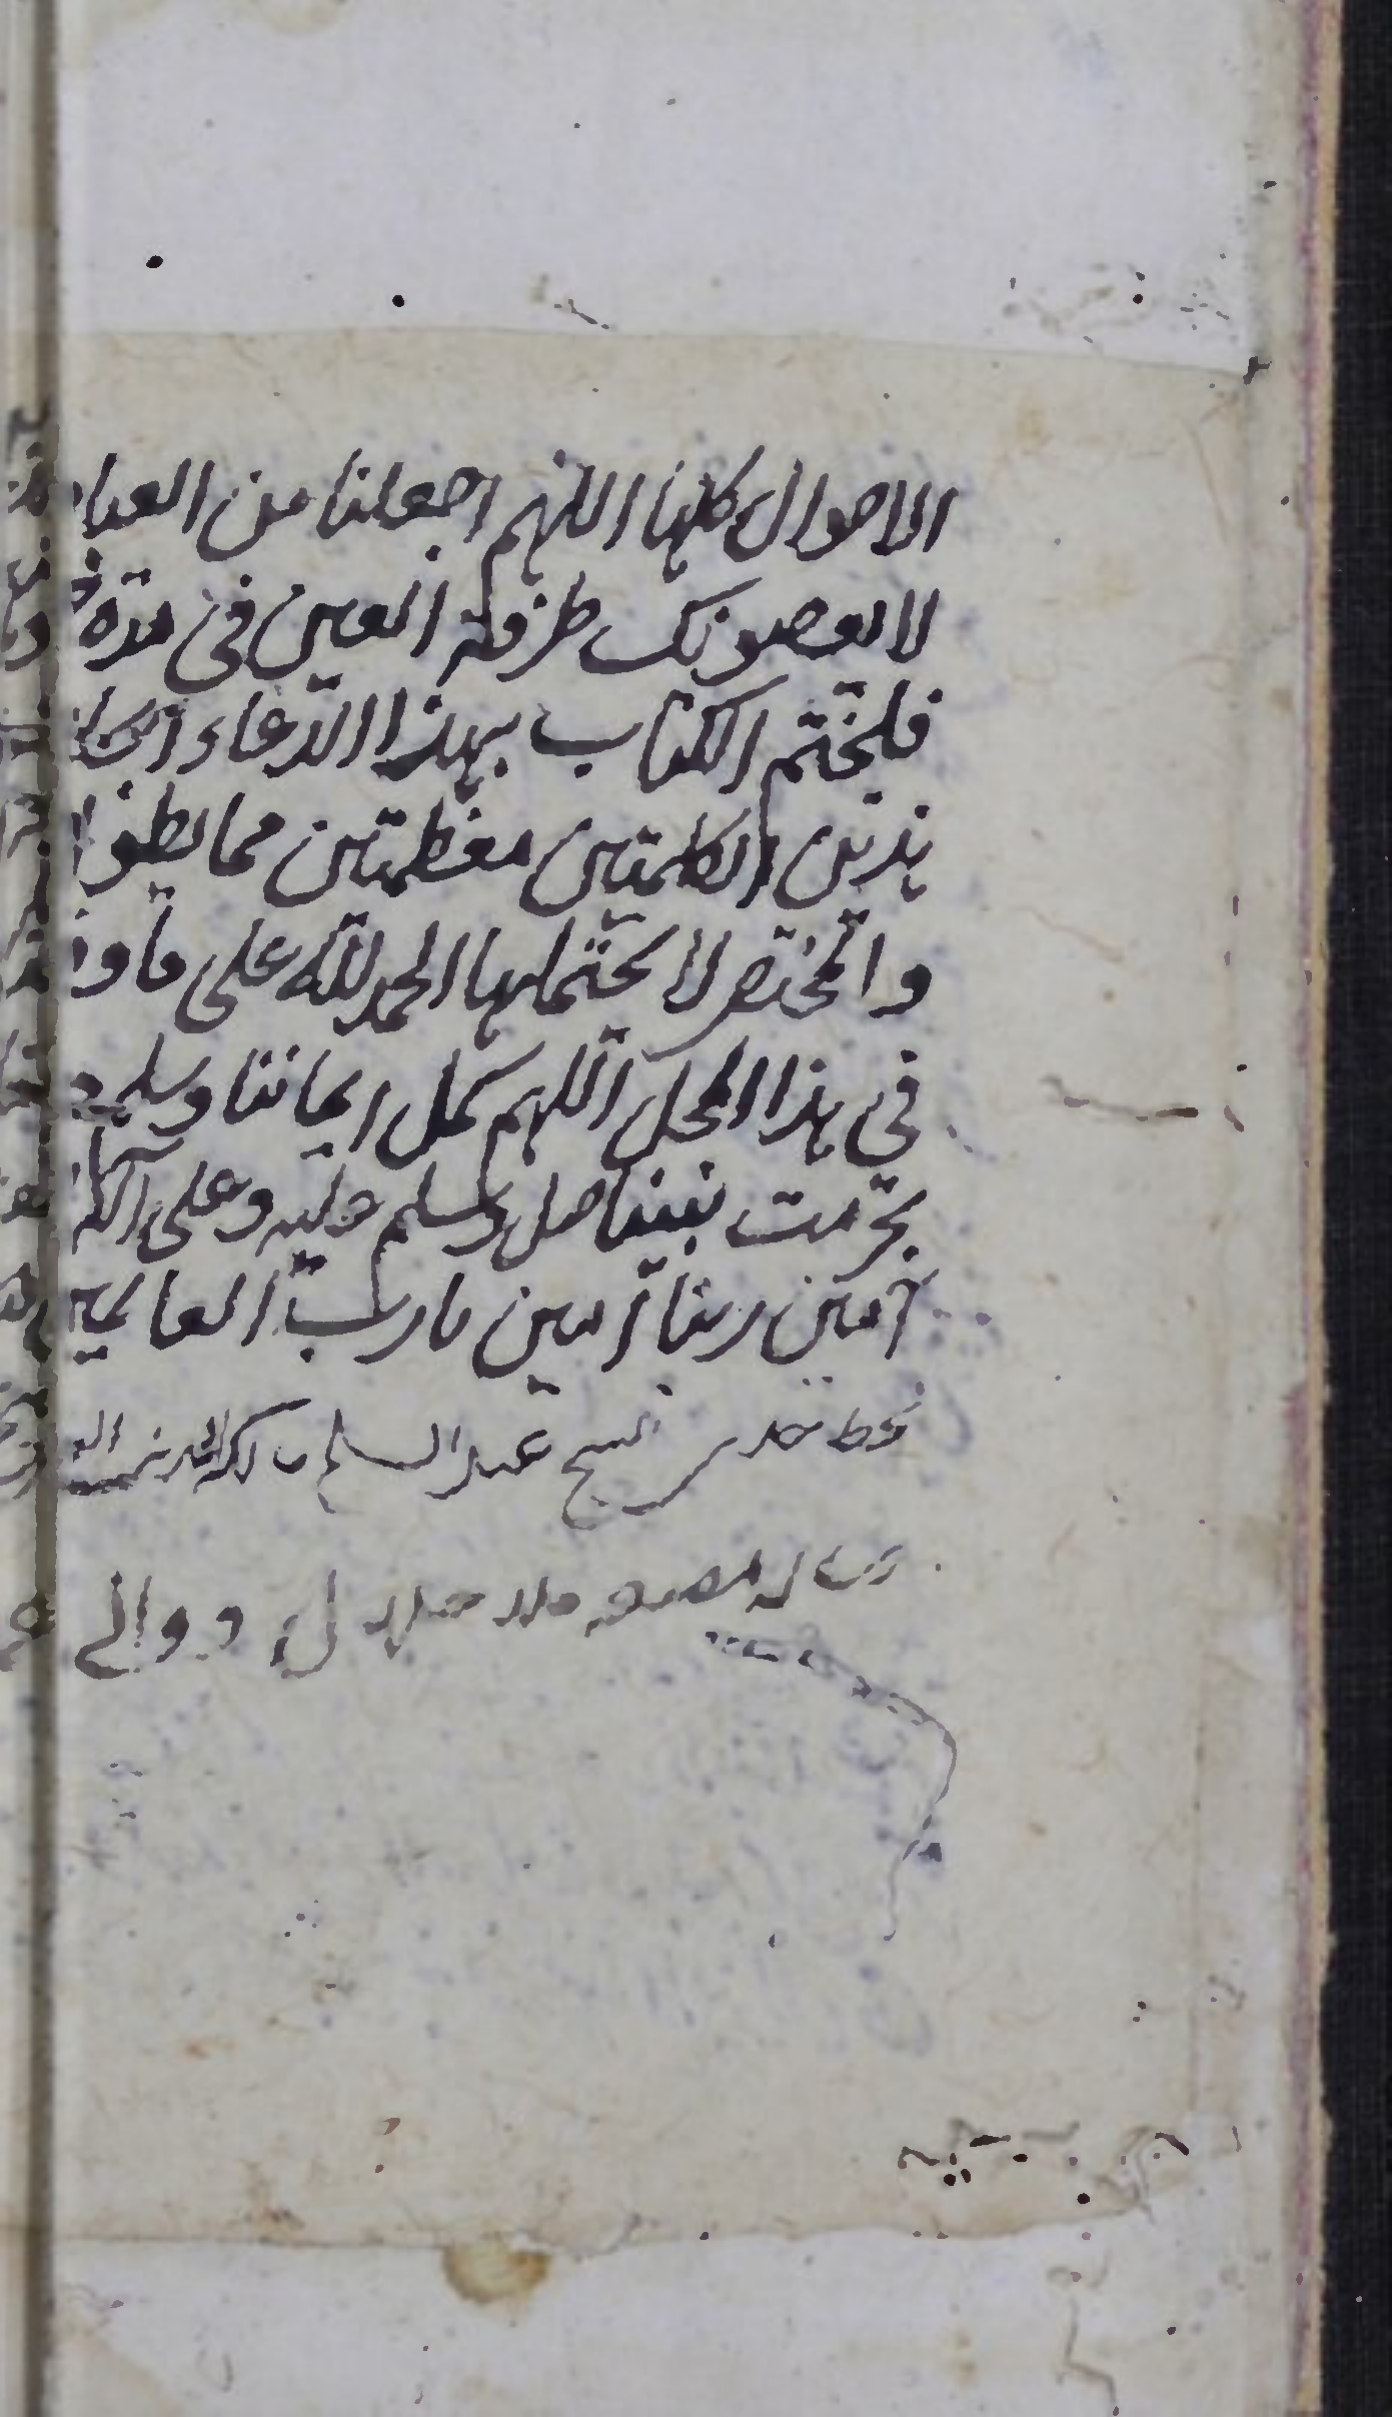 الاحوال كلها اللهم اجعلنا من العباد
لا يعصونك طرفة العين في مدة
فلنختم الكتاب بهذا الدعاء
هذين الكلمتين معظمتين مما يطول
والمختصر لا يحتملها الحمد لله على ما
في هذا المحل اللهم كمل ايماننا وسلم
بحرمت نبينا صل وسلم عليه وعلى آله
آمين ربنا آمين يا رب العالمين
خط الشيخ عبد السلام
رساله ملا جلال دواني